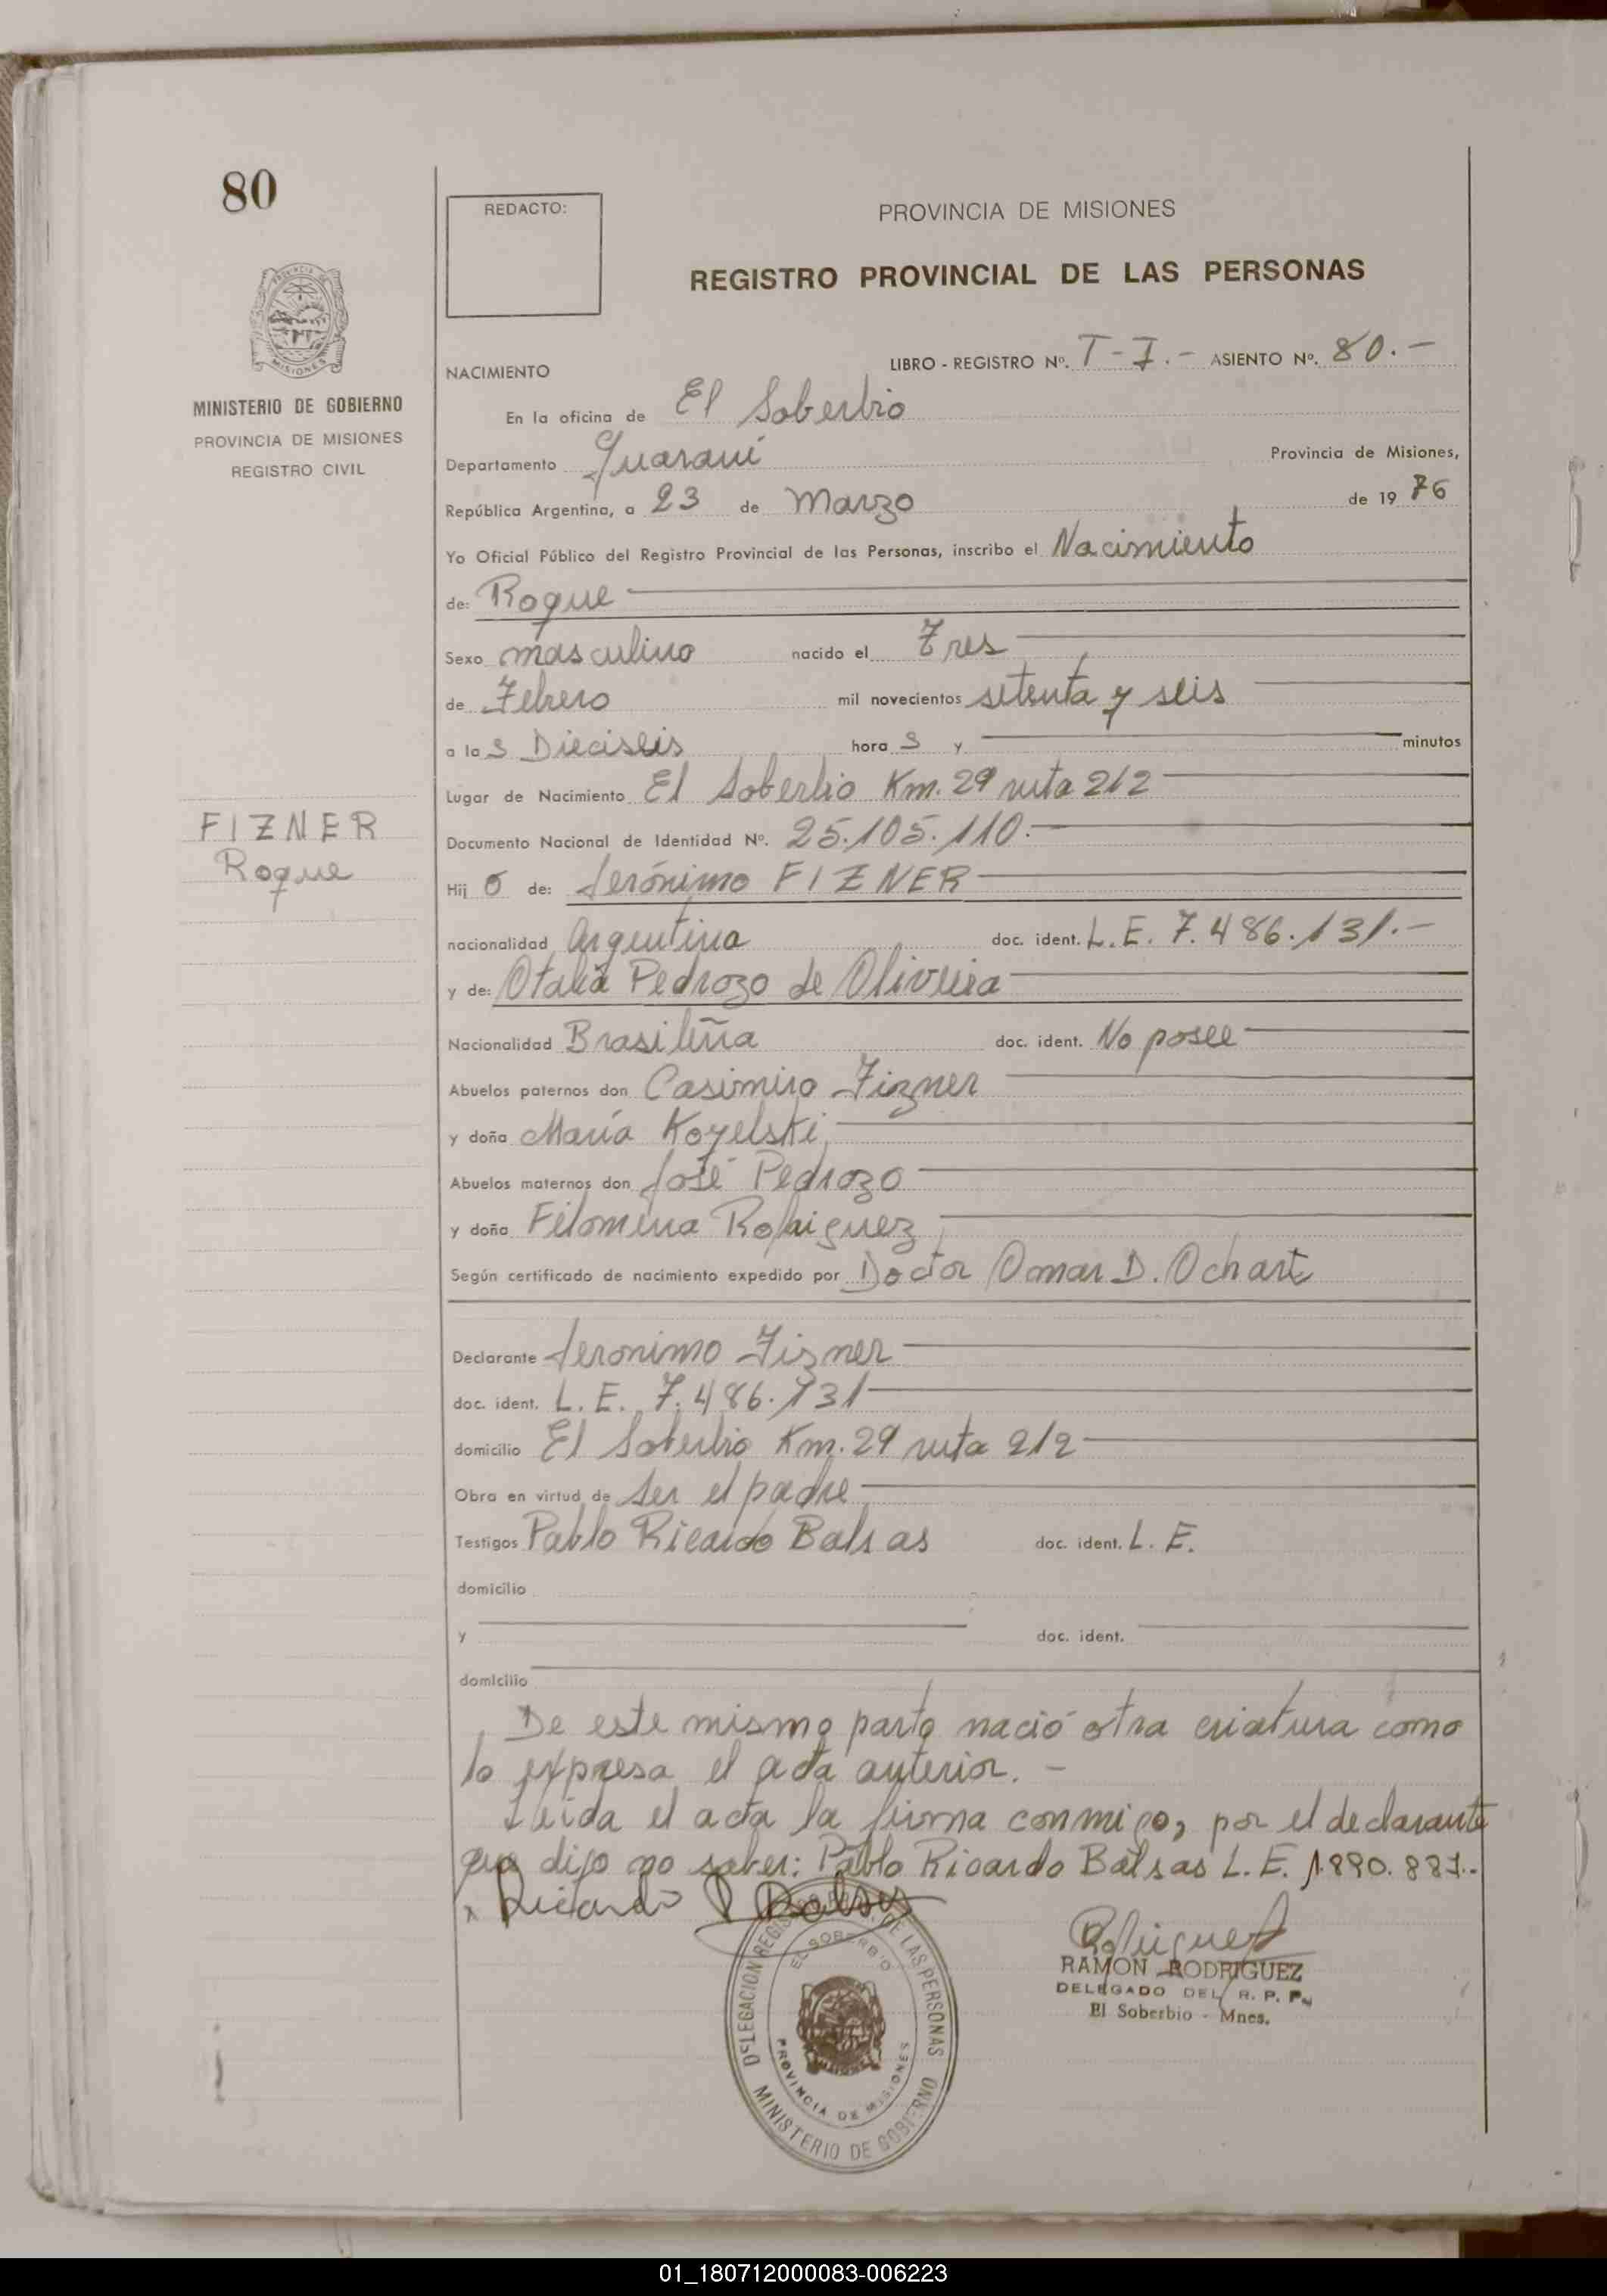 80
MINISTERIO DE GOBIERNO
PROVINCIA DE MISIONES
REGISTRO CIVIL
FIZNER
Roque
REDACTO:
PROVINCIA DE MISIONES
REGISTRO PROVINCIAL DE LAS PERSONAS
NACIMIENTO LIBRO - REGISTRO Nº. T - I. - ASIENTO Nº. 80. -
En la oficina de El Soberbio
Departamento Guaraní Provincia de Misiones,
República Argentina, a 23 de Marzo de 19 76
Yo Oficial Público del Registro Provincial de las Personas, inscribo el Nacimiento
de: Roque
Sexo masculino nacido el Tres
de Febrero mil novecientos setenta y seis
a la s Dieciseis hora s y minutos
Lugar de Nacimiento El Soberbio Km. 29 ruta 212
Documento Nacional de Identidad Nº. 25.105.110.-
Hij o de: Jerónimo FIZNER
nacionalidad Argentina doc. ident. L. E. 7.486.131.-
y de: Otalia Pedrozo de Oliveira
Nacionalidad Brasileña doc. ident. No posee
Abuelos paternos don Casimiro Fizner
y doña María Kozelski
Abuelos maternos don José Pedrozo
y doña Filomena Rodriguez
Según certificado de nacimiento expedido por Doctor Omar D. Ochart
Declarante Jeronimo Fizner
doc. ident. L. E. 7.486.131
domicilio El Soberbio Km. 29 ruta 212
Obra en virtud de Ser el padre
Testigos Pablo Ricardo Balsas doc. ident. L. E.
domicilio
y doc. ident.
domicilio
De este mismo parto nació otra criatura como
lo expresa el acta anterior. -
Leida el acta la firma conmigo, por el declarante
que dijo no saber: Pablo Ricardo Balsas L. E. 1.890.887.-
Ricardo P Balsas
DELEGACION REGISTRO PROV. DE LAS PERSONAS
EL SOBERBIO
PROVINCIA DE MISIONES
MINISTERIO DE GOBIERNO
Rodriguez
RAMON RODRIGUEZ
DELEGADO DEL R. P. P.
El Soberbio - Mnes.
01_180712000083-006223